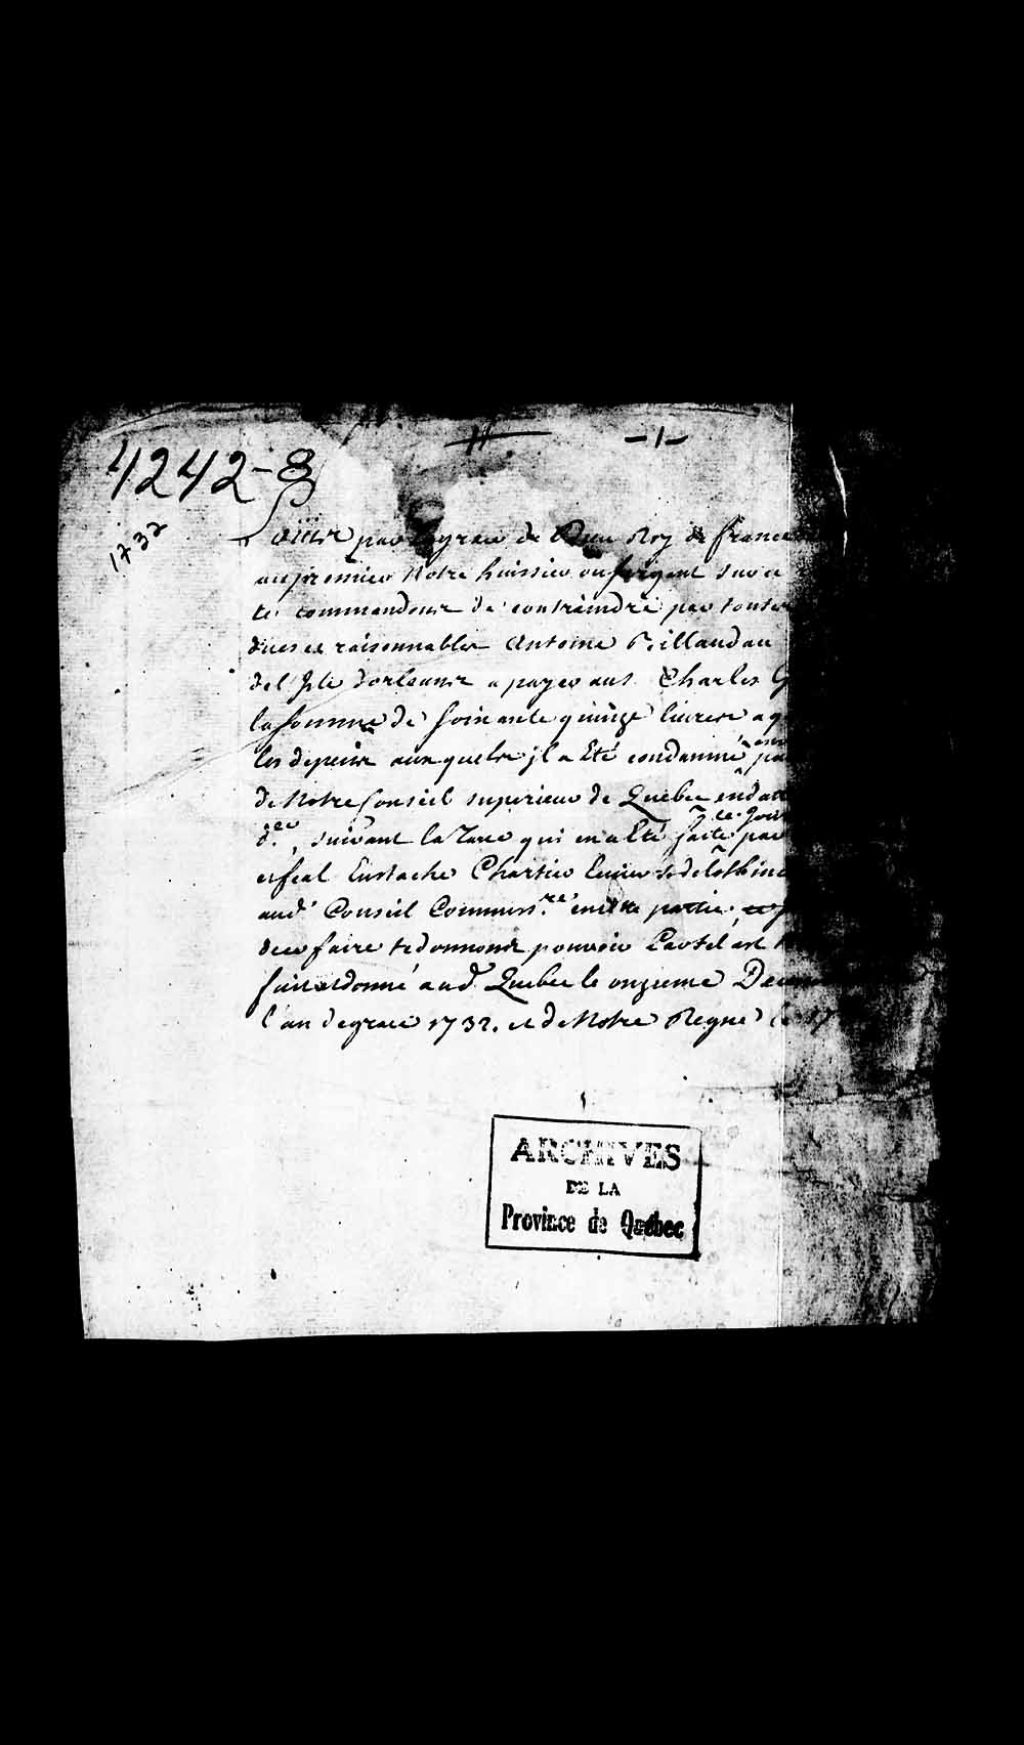 4242-8
-1-
1732
Louis par la grace de Dieu Roy de france
au premier Notre huissier ou sergent sur ce
te commandons de contraindre par toutes
dues et raisonnables Antoine
del Isle dorleans a payer au S. Charles
la somme de soixante quinze livres
les depens auxquels jl a Eté condanné
de Notre Conseil superieur de Quebec
suivant la Taxe qui en a Eté faite par
et feal Eustache Chartier Ecuier Sr delotbin
aud. Conseil Commiss.re en cette partie
de ce faire te donnons pouvoir Car tel est
fait et donné aud. Quebec le onzieme Decem
l'an de grace 1732. et de Notre Regne le 17
ARCHIVES
DE LA
Province de Québec